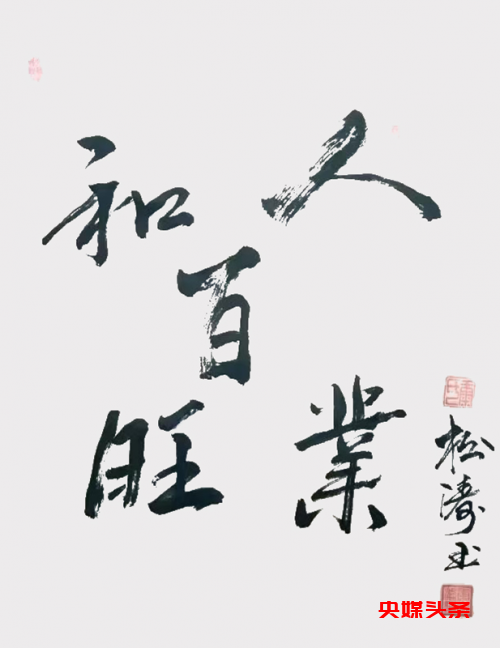 人和
百
業旺
松涛书
央媒头条